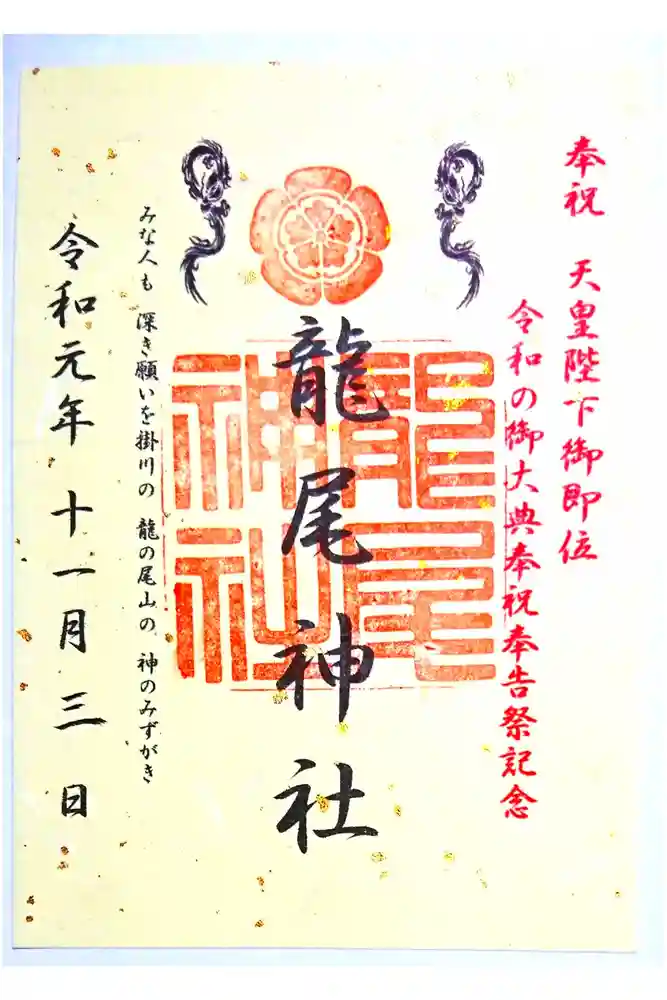 奉祝 天皇陛下御即位
令和の御大典奉祝奉告祭記念
龍尾神社
龍尾神社
みな人も 深き願いを掛川の 龍の尾山の 神のみずがき
令和元年 十一月 三 日